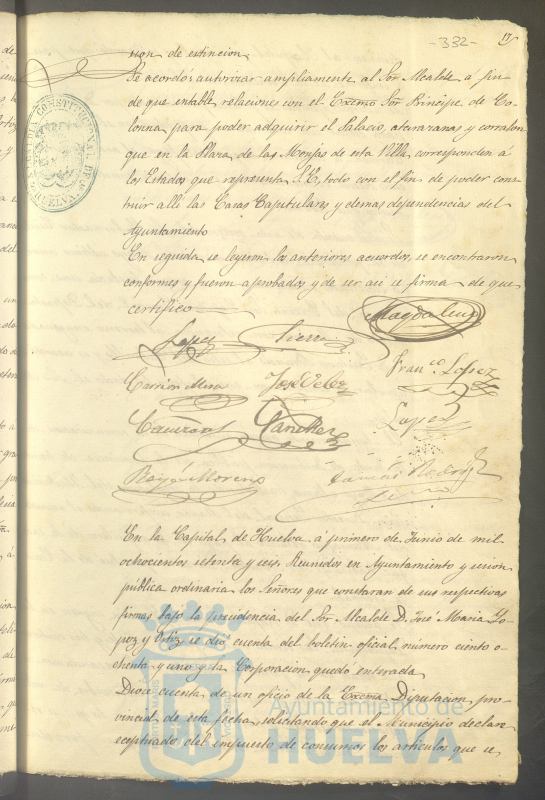 -332-
sion de estincion.
Se acordó autorizar ampliamente al Sor Alcalde á fin
de que entable relaciones con el Excmo Sor Principe de Co-
lonna para poder adquirir el Palacio, atarazanas y corralon
que en la Plaza de las Monjas de esta Villa, corresponden á
los Estados que representa S.E, todo con el fin de poder cons-
truir alli las Casas Capitulares y demas dependencias del
Ayuntamiento
En seguida se leyeron los anteriores acuerdos, se encontraron
conformes y fueron aprobados y de ser asi se firma de que
certifico
Magdalena
Lopez Sierra
Franco Lopez
Garrion Mora José Velez
Sanchez Lopez
Moreno Tomás Rodrig
En la Capital de Huelva á primero de Junio de mil
ochocientos setenta y seis. Reunidos en Ayuntamiento y sesion
pública ordinaria los Señores que constaran de sus respectivas
firmas bajo la presidencia del Sor Alcalde D. José Maria Lo-
pez y Ortiz se dió cuenta del boletin oficial numero ciento o-
chenta y uno y la Corporacion quedó enterada
Diose cuenta de un oficio de la Excma Diputacion pro-
vincial de esta fecha, solicitando que el Municipio declare
eceptuado del impuesto de consumos los articulos que se
CONSTITUCIONAL DE HUELVA
Ayuntamiento de
HUELVA